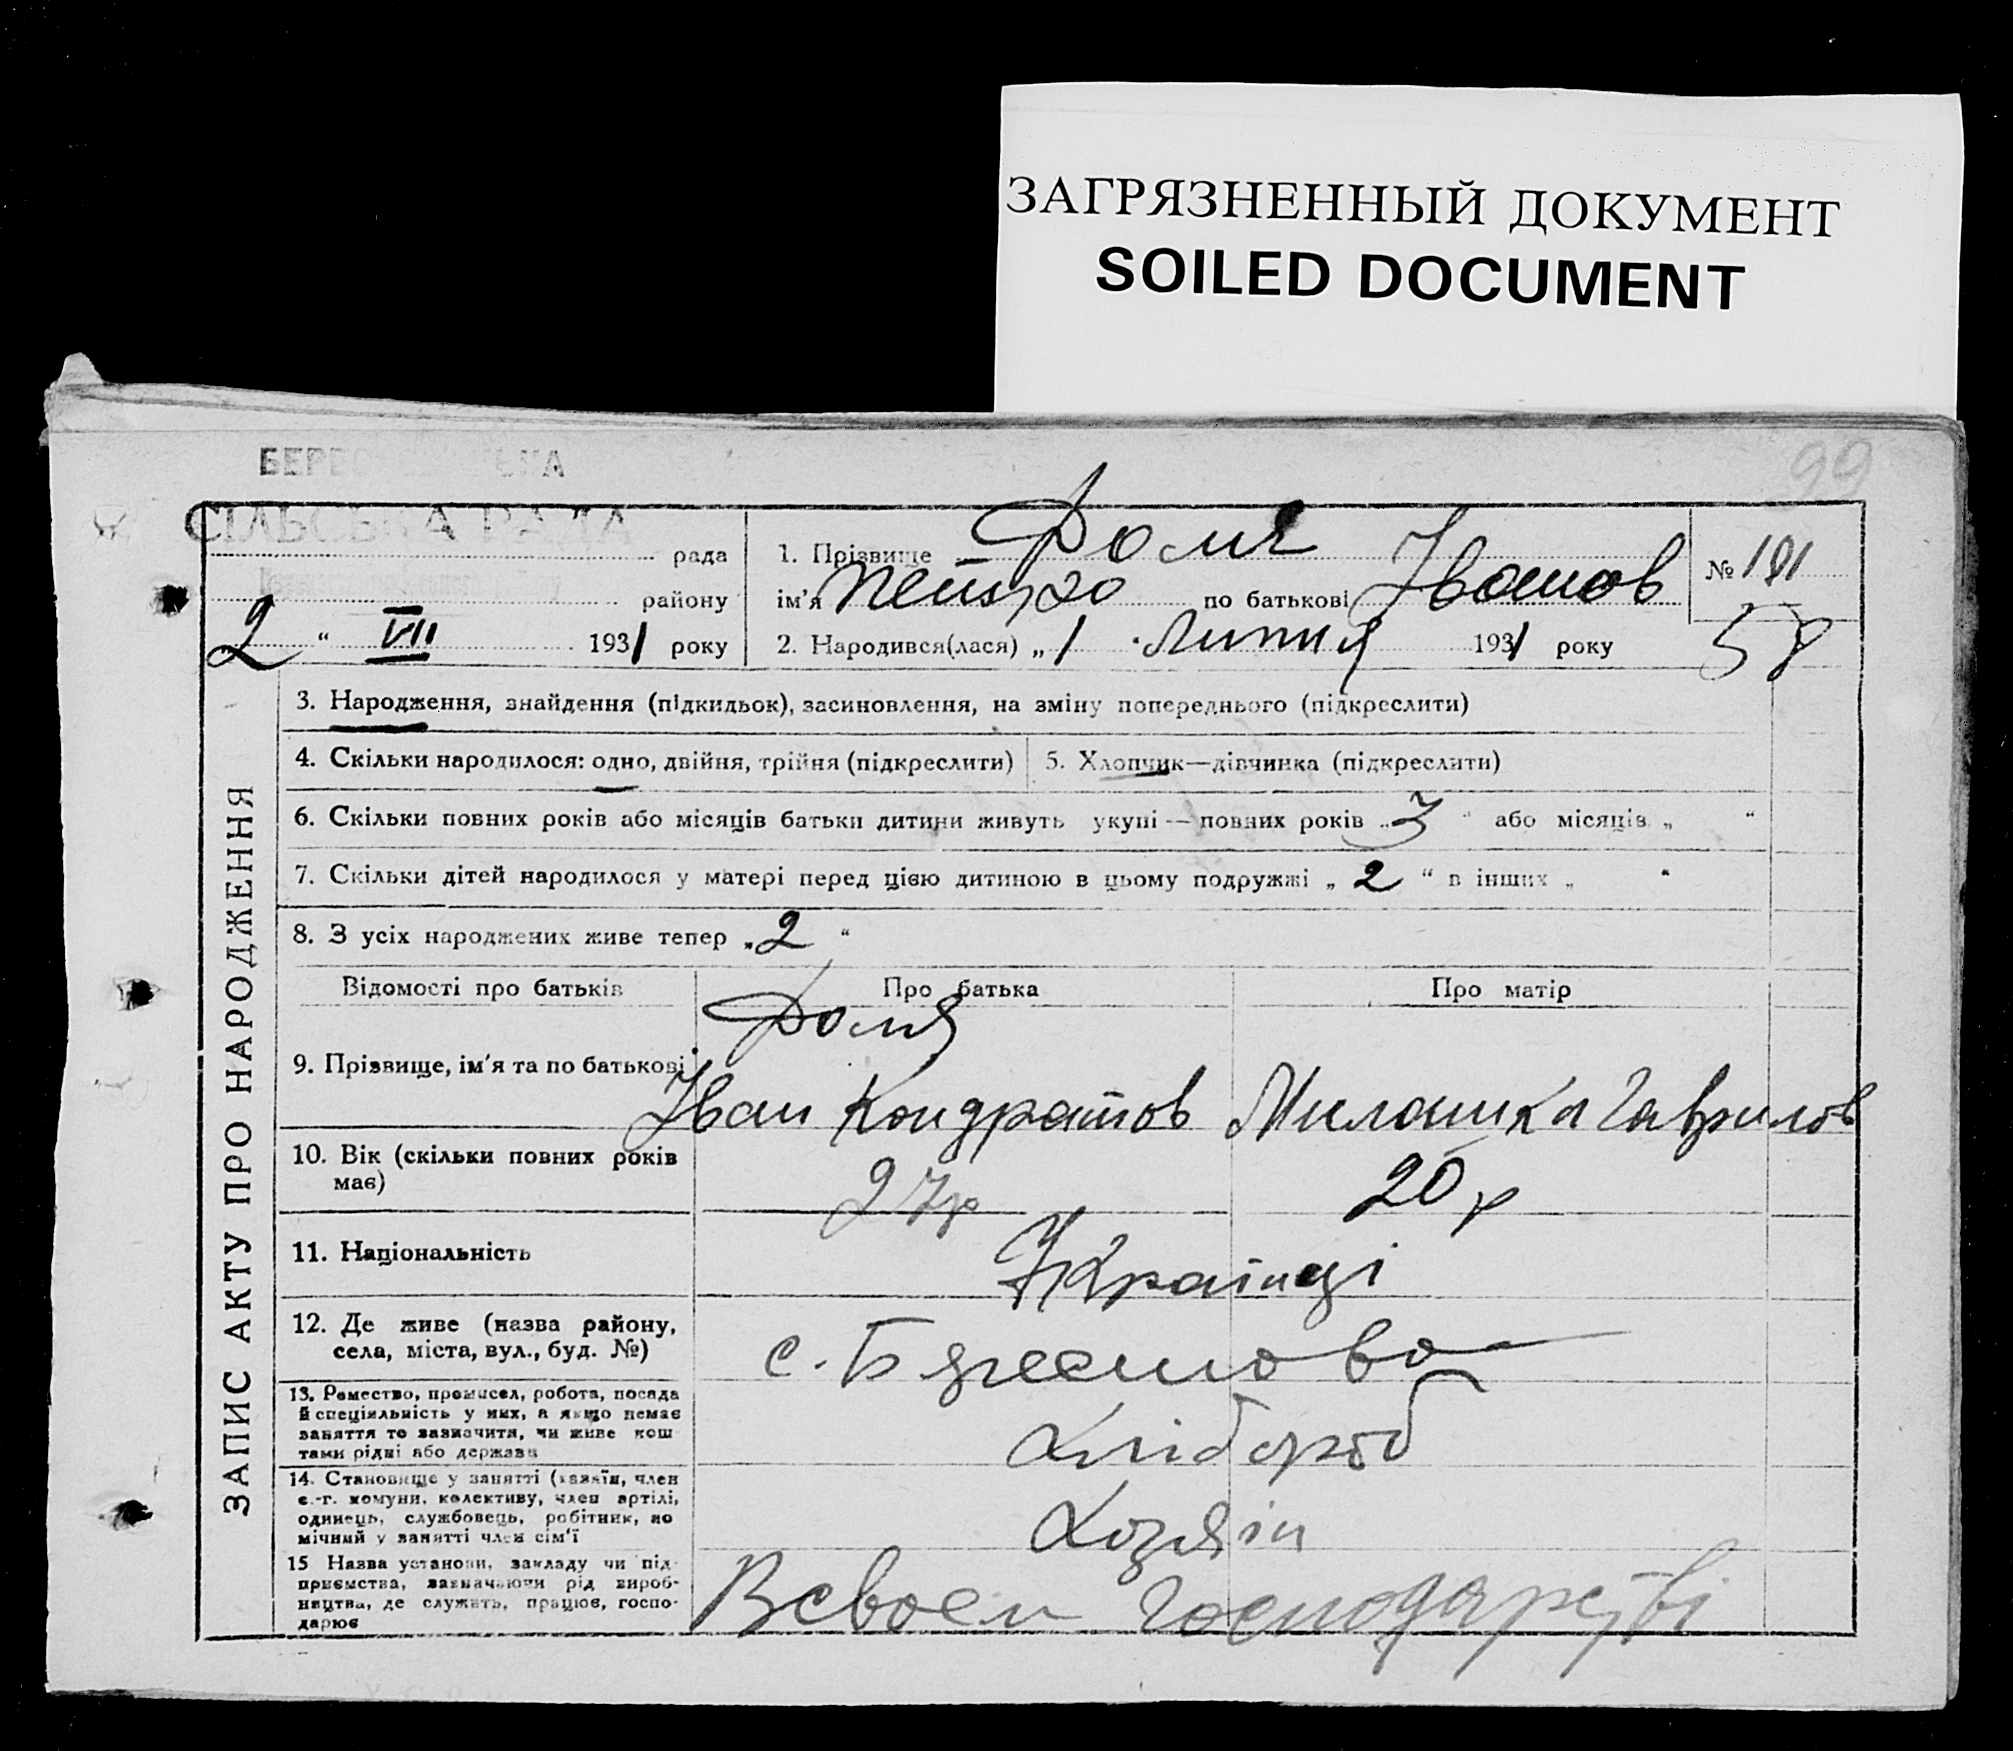 ЗАГРЯЗНЕННЫЙ ДОКУМЕНТ
SOILED DOCUMENT
99
СІЛЬСЬКА РАДА
рада
району
2 " VII 1931 року
1. Прізвище Фомя
ім'я Петро по батькові Іванов
2. Народився(лася) „ 1 " Липня 1931 року
№ 101
58
ЗАПИС АКТУ ПРО НАРОДЖЕННЯ
3. Народження, знайдення (підкидьок), засиновлення, на зміну попереднього (підкреслити)
4. Скільки народилося: одно, двійня, трійня (підкреслити)
5. Хлопчик—дівчинка (підкреслити)
6. Скільки повних років або місяців батьки дитини живуть укупі — повних років „ 3 " або місяців „ "
7. Скільки дітей народилося у матері перед цією дитиною в цьому подружжі „ 2 " в інших „ "
8. З усіх народжених живе тепер „ 2 "
Відомості про батьків
Про батька
Про матір
9. Прізвище, ім'я та по батькові
Фомя
Іван Кондратов
Милашка Гаврилов
10. Вік (скільки повних років має)
27 р
20 р
11. Національність
Українці
12. Де живе (назва району,
села, міста, вул., буд. №)
с. Берестова
13. Ремество, промисел, робота, посада
й спеціяльність у них, а якщо немає
заняття то зазначити, чи живе кош
тами рідні або держави
Хлібороб
14. Становище у занятті (хазяїн, член
с.-г. комуни, колективу, член артілі,
одинець, службовець, робітник, по
мічний у занятті член сім'ї
Хозяін
15 Назва установи, закладу чи під-
приємства, зазначаючи рід вироб-
ництва, де служить, працює, госпо-
дарює
В своем господарстві